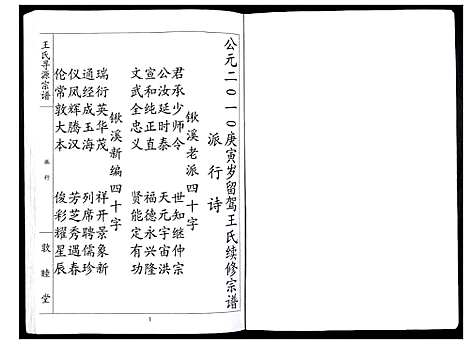 公元二〇一〇庚寅岁留驾王氏续修宗谱
派行诗
锹溪老派四十字
君承少师令 世知继仲宗
公汝延时泰 天元宇宙洪
宣和纯正直 福德永兴隆
文武全忠义 贤能定有功
锹溪新编四十字
瑞衍英华茂 祥开景象新
通经成玉海 列席聘儒珍
仪凤辉腾汉 芳芝秀遇春
伦常敦大本 俊彩耀星辰
王氏寻源宗谱
派行
敦睦堂
1